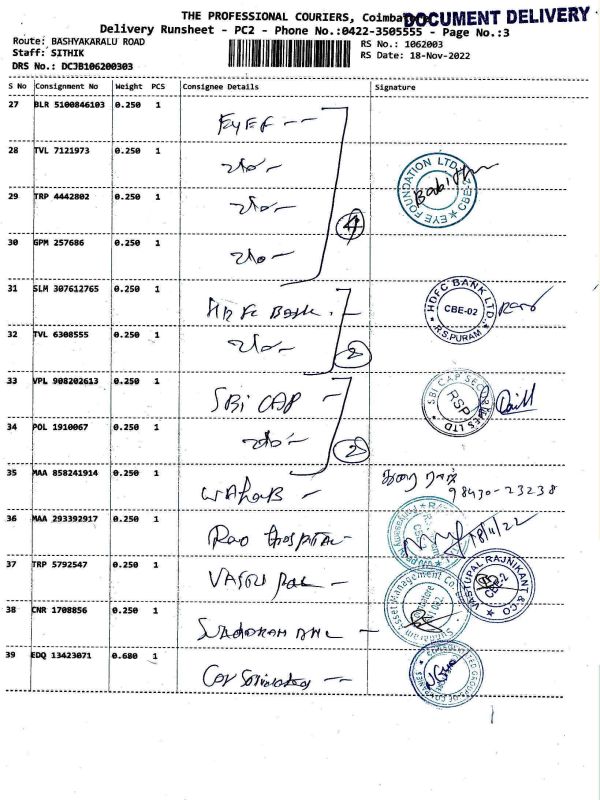 THE PROFESSIONAL COURIERS, Coimbatore
DOCUMENT DELIVERY
Delivery Runsheet - PC2 - Phone No.:0422-3505555 - Page No.:3
Route: BASHYAKARALU ROAD
RS No.: 1062003
Staff: SITHIK
RS Date: 18-Nov-2022
DRS No.: DCJB106200303
S No Consignment No Weight PCS Consignee Details Signature
27 BLR 5100846103 0.250 1
28 TVL 7121973 0.250 1
EYE FOUNDATION LTD CBE-2
29 TRP 4442802 0.250 1
30 GPM 257686 0.250 1
31 SLM 307612765 0.250 1 HDFC Bank
HDFC BANK LTD. CBE-02 R.S.PURAM
32 TVL 6308555 0.250 1
2
33 VPL 908202613 0.250 1 SBI CAP
SBI CAP SEC LTD RSP
34 POL 1910067 0.250 1
2
35 MAA 858241914 0.250 1 WAHAB
98430-23238
36 MAA 293392917 0.250 1 Rao HOSPITAL
18/11/22
37 TRP 5792547 0.250 1
VASTUPAL RAJNIKANT & CO CBE-2
38 CNR 1708856 0.250 1
Sundaram Asset Management Co.
39 EDQ 13423071 0.680 1 Consolidated